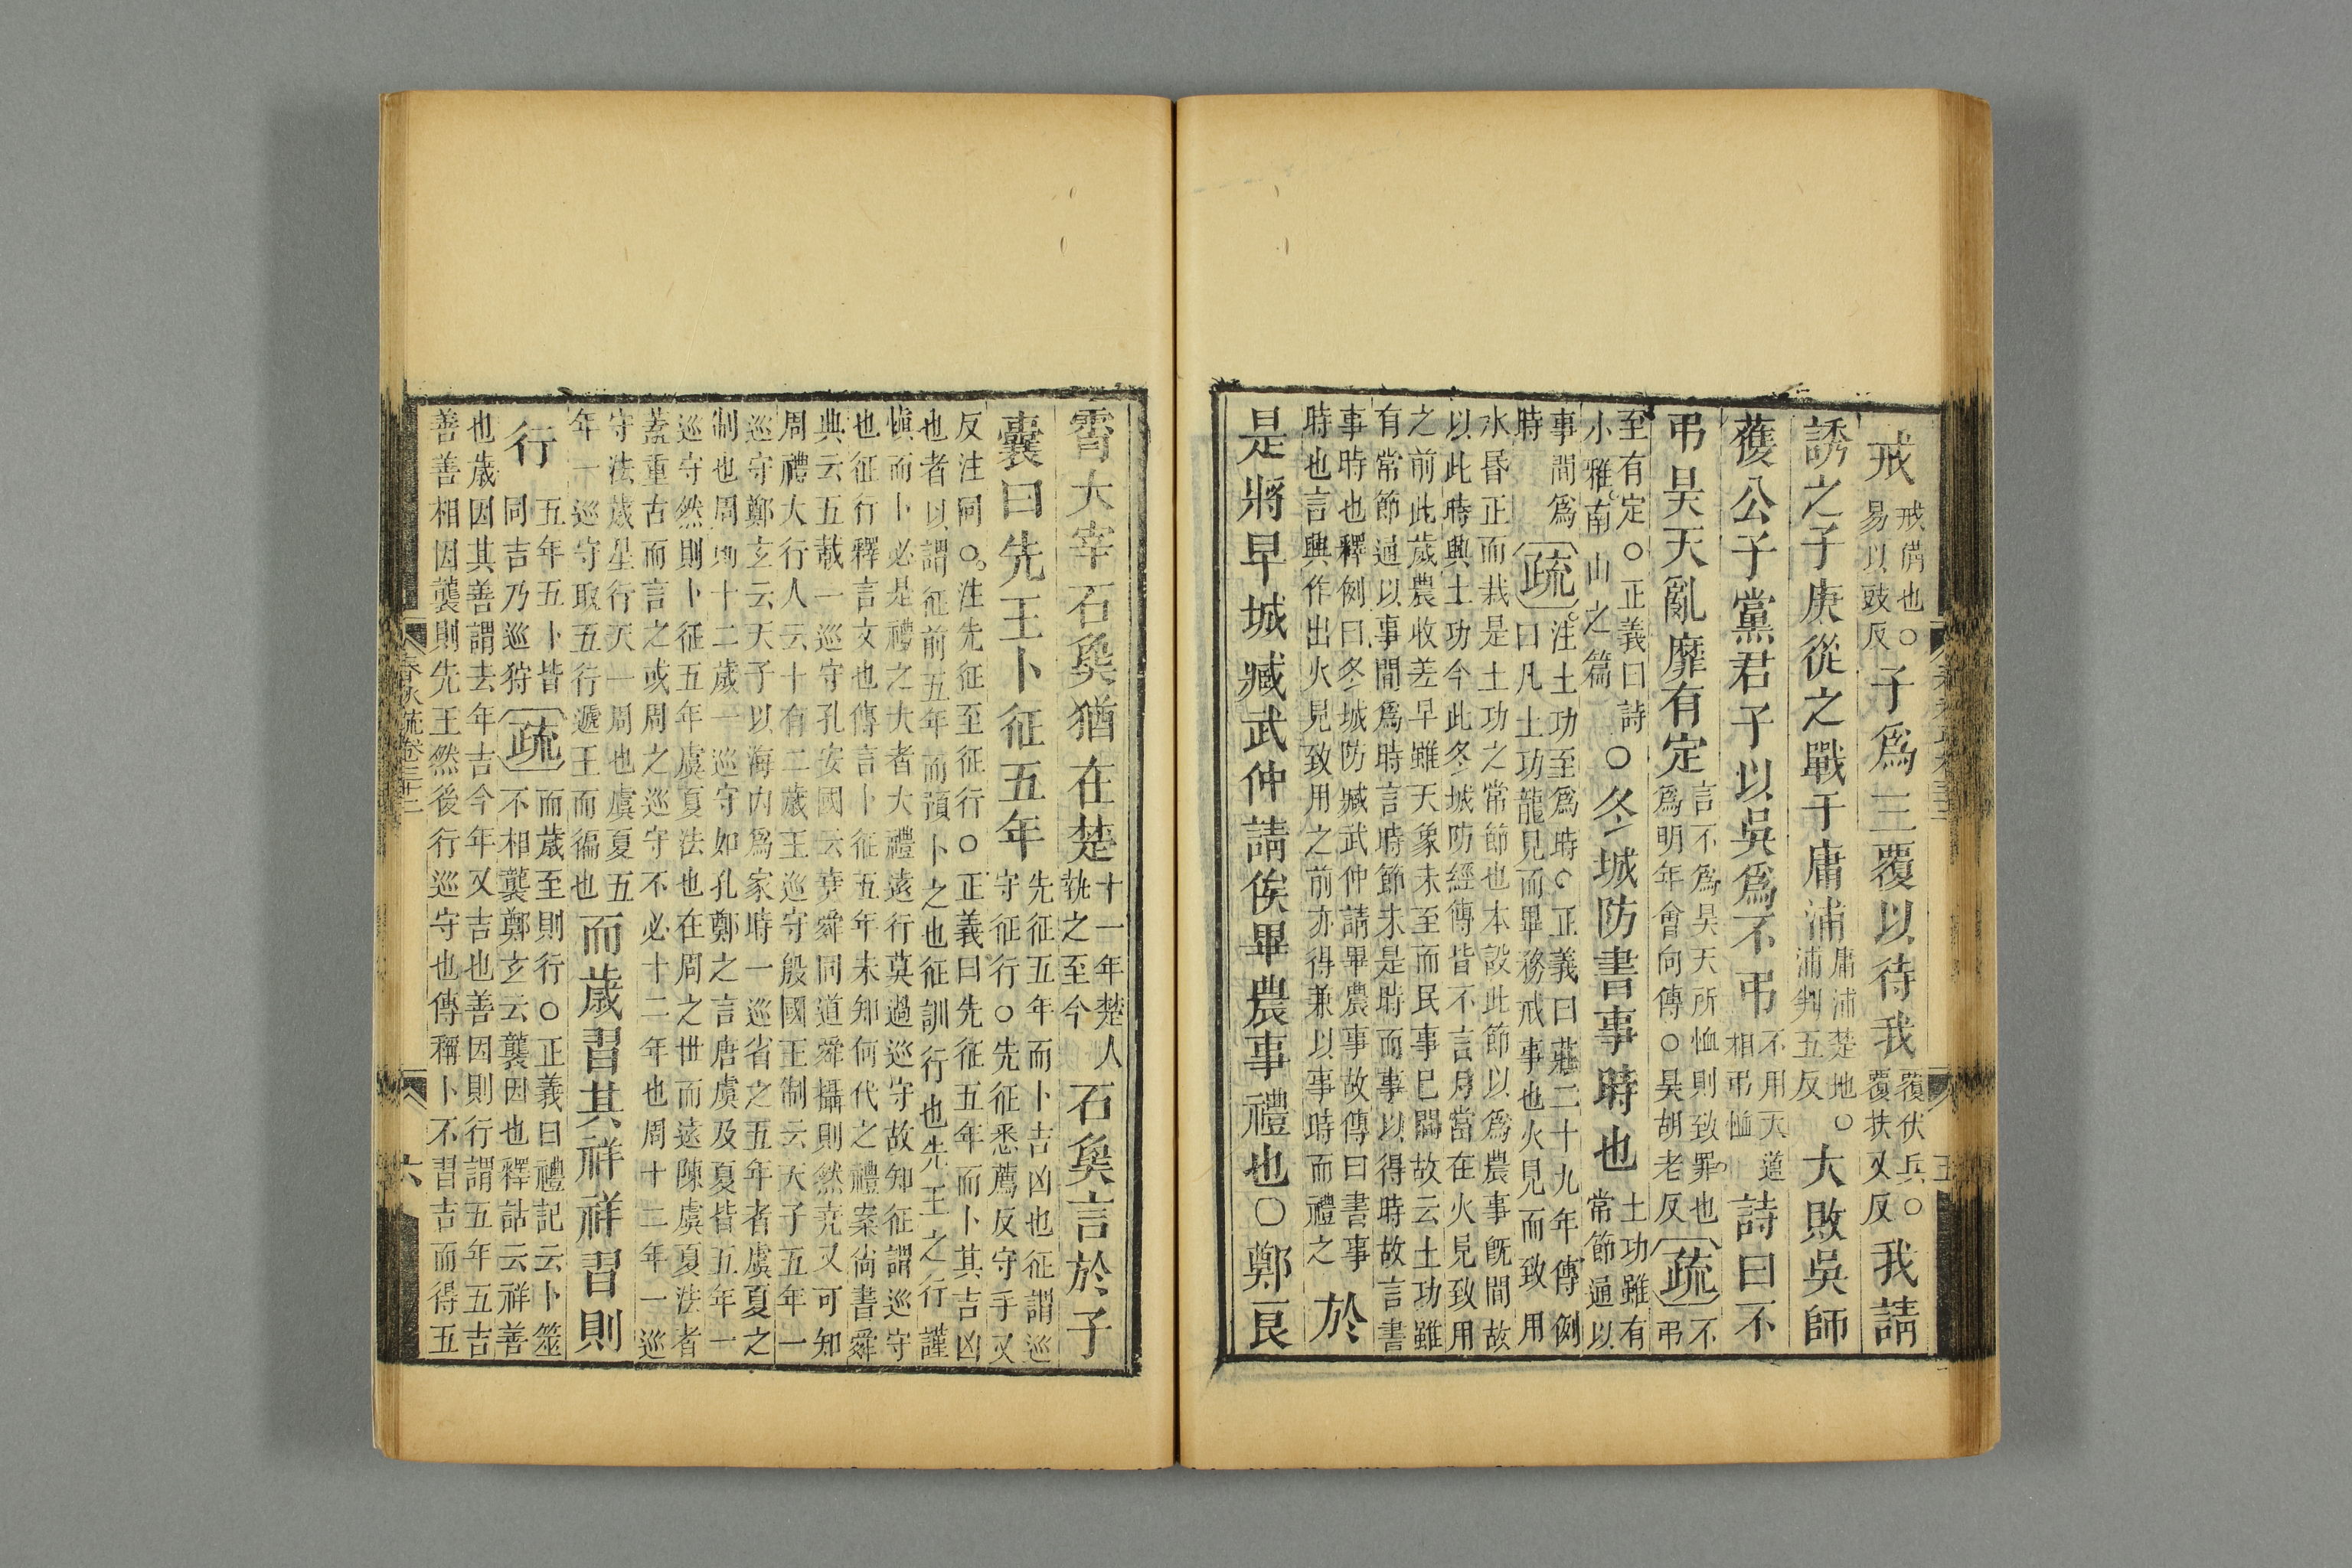 戒戒備也○易以豉反子爲三覆以待我覆伏兵○覆扶又反我請
誘之子庚從之戰于庸浦庸浦楚地○浦判五反大敗吳師
獲公子黨君子以吳爲不弔不用天道相弔恤詩曰不
弔昊天亂靡有定言不爲昊天所恤則致罪也爲明年會向傳○昊胡老反疏不弔
至有定○正義曰詩小雅南山之篇○冬城防書事時也土功雖有常節通以
事間爲時疏注土功至爲時○正義曰莊二十九年傳例曰凡土功龍見而畢務戒事也火見而致用
水昏正而栽是土功之常節也本設此節以爲農事旣閒故以此時興土功今此冬城防經傳皆不言月當在火見致用
之前此歲農收差早雖天象未至而民事已閒故云土功雖有常節通以事閒爲時言時節未是時而事以得時故言書
事時也釋例曰冬城防臧武仲請畢農事故傳曰書事時也言興作出火見致用之前亦得兼以事時而禮之於
是將早城臧武仲請俟畢農事禮也○鄭良
霄大宰石㚟猶在楚十一年楚人執之至今石㚟言於子
囊曰先王卜征五年先征五年而卜吉凶也征謂巡守征行○先征悉薦反守手又
反注同○注先征至征行○正義曰先征五年而卜其吉凶也者以謂征前五年而預卜之也征訓行也先王之行謹
愼而卜必是禮之大者大禮遠行莫過巡守故知征謂巡守也征行釋言文也傳言卜征五年未知何代之禮案尚書舜
典云五載一巡守孔安國云堯舜同道舜攝則然堯又可知周禮大行人云十有二歲王巡守殷國王制云天子五年一
巡守鄭玄云天子以海內爲家時一巡省之五年者虞夏之制也周則十二歲一巡守如孔鄭之言唐虞及夏皆五年一
巡守然則卜征五年虞夏法也在周之世而遠陳虞夏法者蓋重古而言之或周之巡守不必十二年也周十二年一巡
守法歲星行天一周也虞夏五年一巡守取五行遞王而徧也而歲習其祥祥習則
行五年五卜皆同吉乃巡狩疏而歲至則行○正義曰禮記云卜筮不相襲鄭玄云襲因也釋詁云祥善
也歲因其善謂去年吉今年又吉也善因則行謂五年五吉善善相因襲則先王然後行巡守也傳稱卜不習吉而得五
春秋疏卷三十二
六